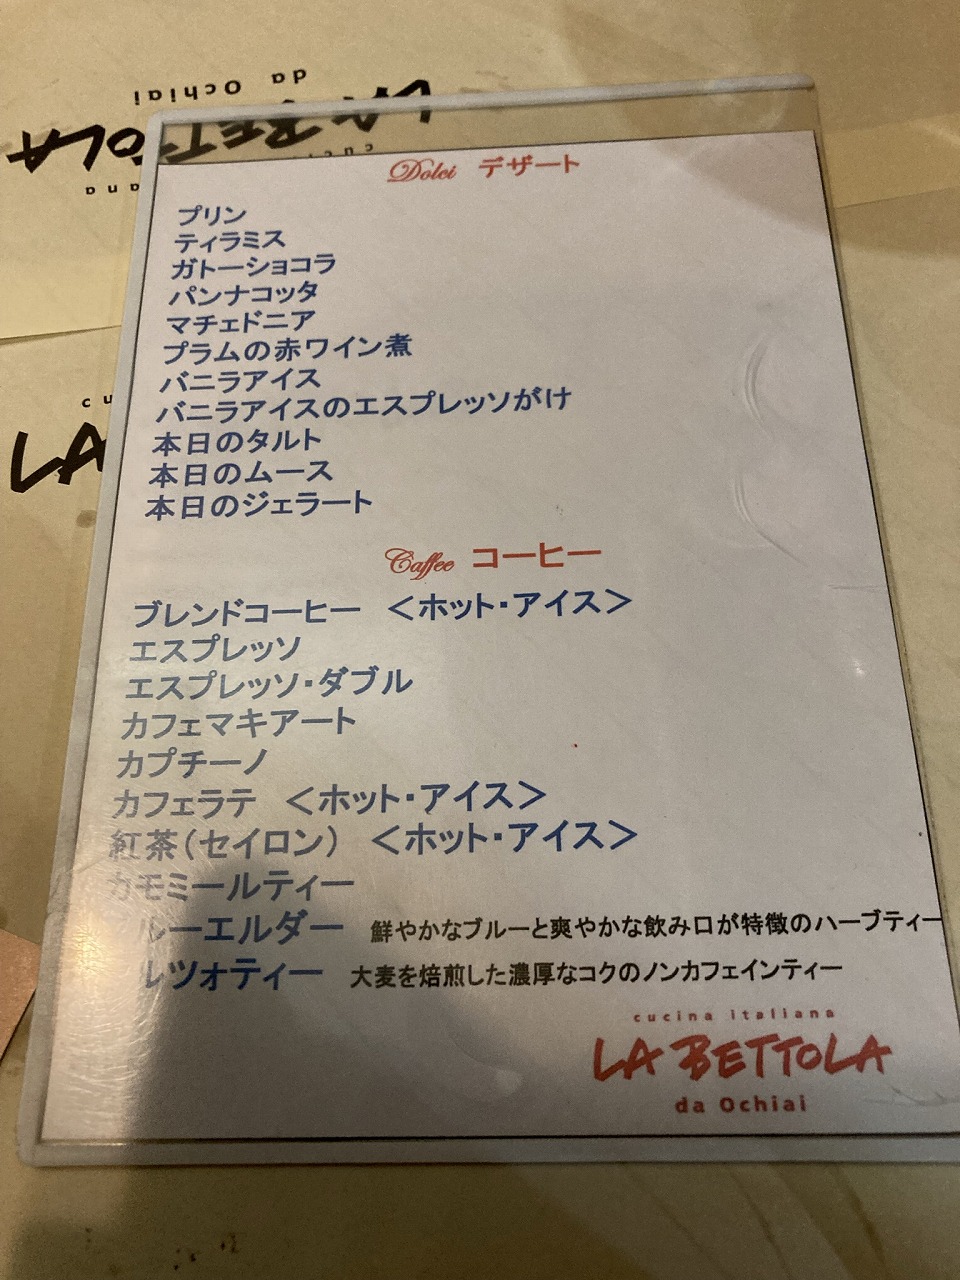 da Ochiai
LA BETTOLA
Dolci デザート
プリン
ティラミス
ガトーショコラ
パンナコッタ
マチェドニア
プラムの赤ワイン煮
バニラアイス
バニラアイスのエスプレッソがけ
本日のタルト
本日のムース
本日のジェラート
LA
Caffee コーヒー
ブレンドコーヒー <ホット・アイス>
エスプレッソ
エスプレッソ・ダブル
カフェマキアート
カプチーノ
カフェラテ <ホット・アイス>
紅茶(セイロン) <ホット・アイス>
カモミールティー
ルーエルダー 鮮やかなブルーと爽やかな飲み口が特徴のハーブティー
ルツォティー 大麦を焙煎した濃厚なコクのノンカフェインティー
cucina italiana
LA BETTOLA
da Ochiai